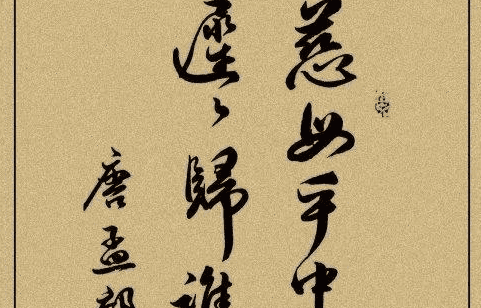 慈母手中
遲〻歸誰
唐孟郊